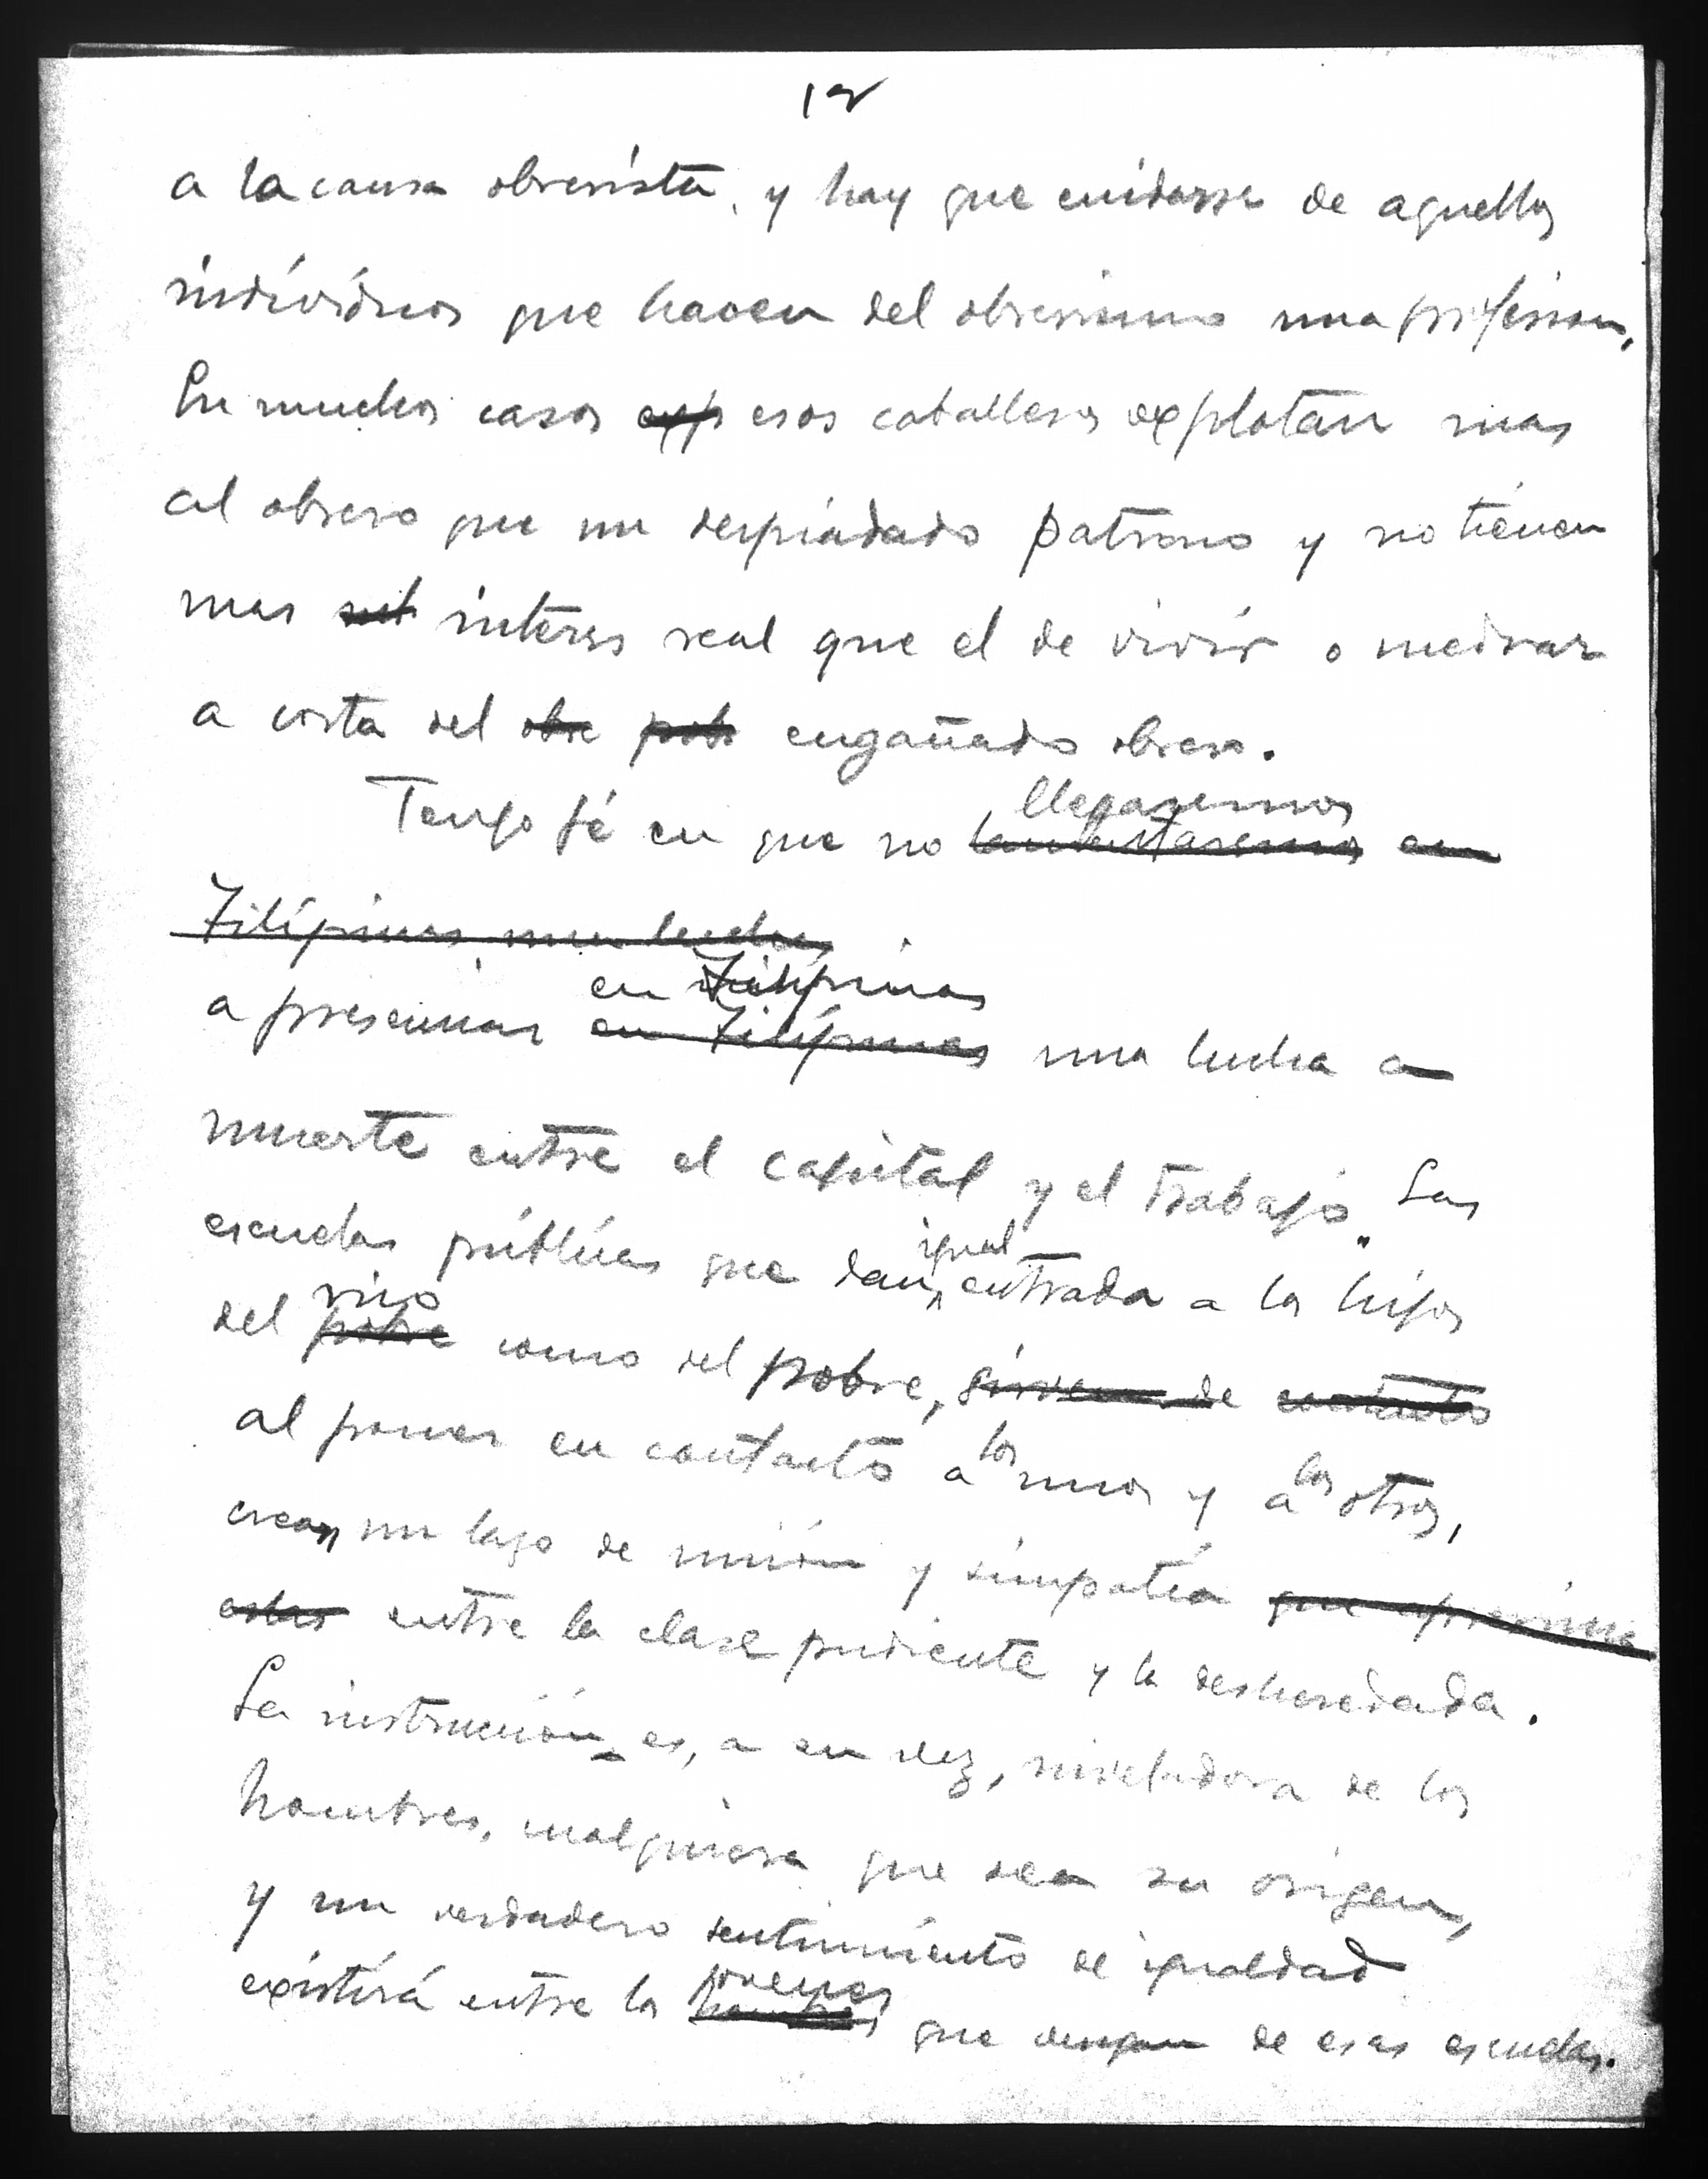 12
a la causa obrerista, y hay que cuidarse de aquellos
individuos que hacen del obrerismo una profesion.
En muchos casos exp esos caballeros explotan mas
al obrero que un despiadado patrono y no tienen
mas interes real que el de vivir o medrar
a costa del obre pobr engañado obrero.
llegaremos
Tengo fé en que no en
Filipinas una lucha
en Filipinas
a presenciar en Filipinas una lucha a
muerte entre el capital y el trabajo. Las
igual
escuelas públicas que dan entrada a los hijos
rico
del pobre como del pobre, sirven de contacto
los los
al poner en contacto a unos y a otros,
crean un lazo de unión y simpatía que aproxima
entre la clase pudiente y la desheredada.
La instrucción es, a su vez, niveladora de los
hombres, cualquiera que sea su origen,
y un verdadero sentimiento de igualdad
jovenes
existirá entre los hombres que de esas escuelas.